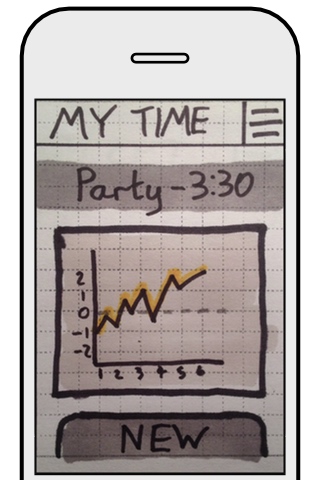 MY TIME
Party-3:30
2
1
0
-1
-2
1 2 3 4 5 6
NEW